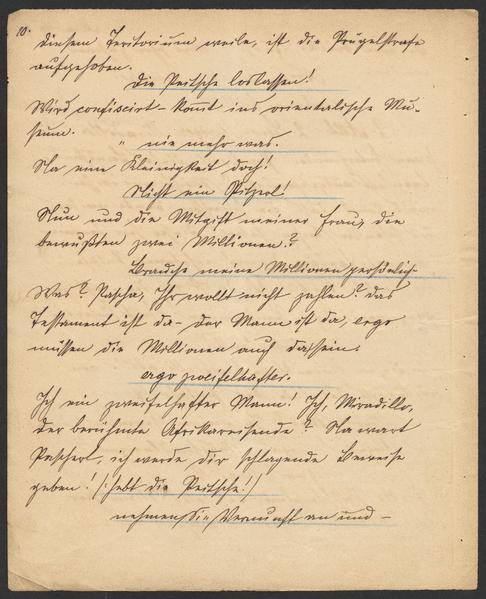 10.
diesem Territorium weile, ist die Prügelstrafe
aufgehoben.
Die Peitsche loslassen!
Wird confiscirt – kommt ins orientalische Mu-
seum.
" nie mehr was.
Na eine Kleinigkeit doch!
Nicht ein Pitzerl!
Nun und die Mitgift meiner Frau, die
bewußten zwei Millionen?
Brauche meine Millionen persönlich.
Was? Pascha, Ihr wollt nicht zahlen? das
Testament ist da – der Mann ist da, ergo
müssen die Millionen auch da sein.
ergo zweifelhafter.
Ich ein zweifelhafter Mann! Ich, Miradillo,
der berühmte Afrikareisende? Na wart
Pascherl, ich werde dir schlagende Beweise
geben! /: hebt die Peitsche! /
nehmen Sie Vernunft an und –